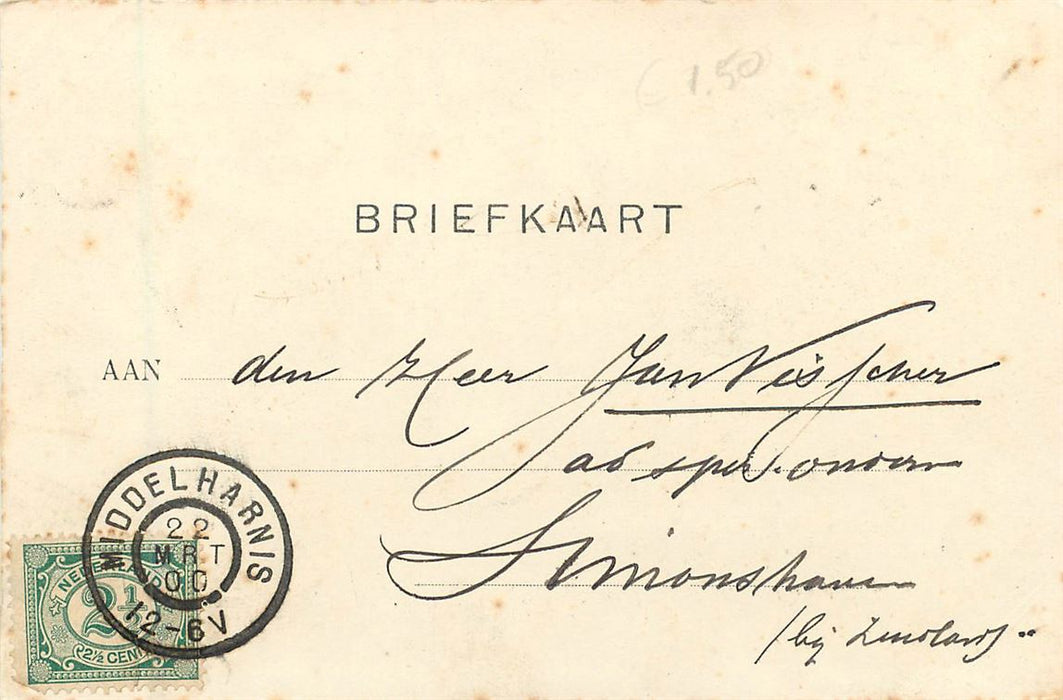 € 1.50
BRIEFKAART
AAN den Heer Jan Visscher
Simonshaven
(bij Zuidland)
MIDDELHARNIS
22
MRT
00
12-6V
NE
2½
2½ CEN